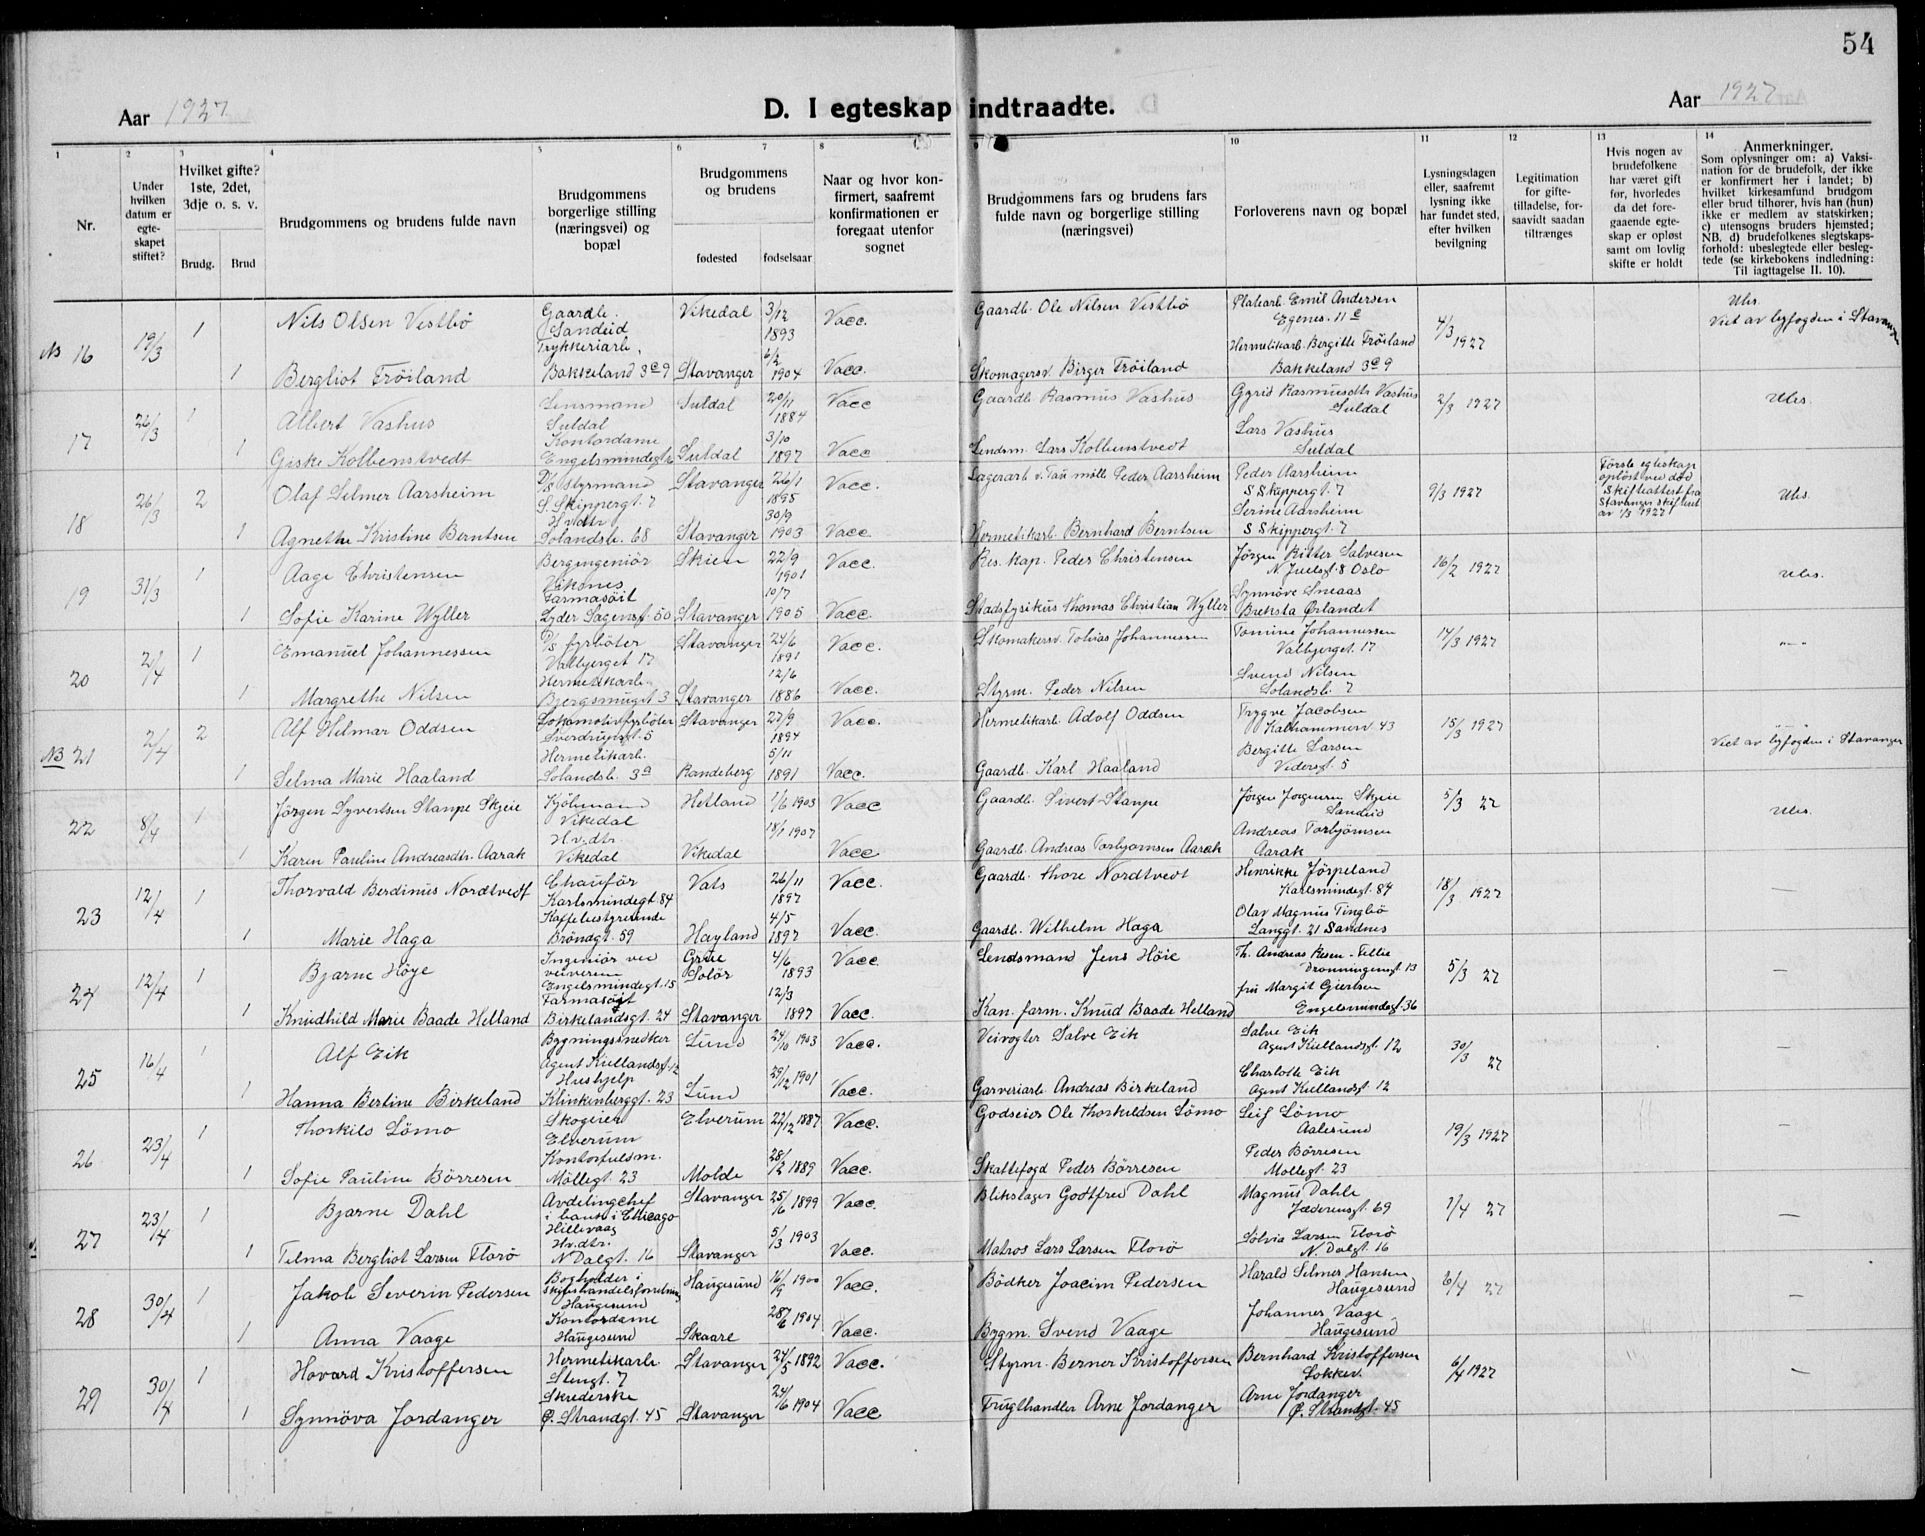 54
Aar 1927
D. I egteskap indtraadte.
Aar 1927
1 2 3 4 5 6 7 8 9 10 11 12 13 14
Nr.
Under hvilken datum er egte-skapet stiftet?
Hvilket gifte? 1ste, 2det, 3dje o. s. v.
Brudg. Brud
Brudgommens og brudens fulde navn
Brudgommens borgerlige stilling (næringsvei) og bopæl
Brudgommens og brudens
fødested fødselsaar
Naar og hvor kon-firmert, saafremt konfirmationen er foregaat utenfor sognet
Brudgommens fars og brudens fars fulde navn og borgerlige stilling (næringsvei)
Forloverens navn og bopæl
Lysningsdagen eller, saafremt lysning ikke har fundet sted, efter hvilken bevilgning
Legitimation for gifte-tilladelse, for-saavidt saadan tiltrænges
Hvis nogen av brudefolkene har været gift før, hvorledes da det fore-gaaende egte-skap er opløst samt om lovlig skifte er holdt
Anmerkninger. Som oplysninger om: a) Vaksi-nation for de brudefolk, der ikke er konfirmert her i landet; b) hvilket kirkesamfund brudgom eller brud tilhører, hvis han (hun) ikke er medlem av statskirken; c) utensogns bruders hjemsted; NB. d) brudefolkenes slegtskaps-forhold: ubeslegtede eller besleg-tede (se kirkebokens indledning: Til iagttagelse II. 10).
NB 16 19/3 1 Nils Olsen Vestbö Gaardb. Sandeid Vikedal 3/12 1893 Vacc. Gaardb. Ole Nilsen Vestbö Platearb. Emil Andersen Egenes. 11 c 4/3 1927 Ubs. Viet av byfogden i Stavanger
1 Bergliot Tröiland Trykkeriarb. Bakkeland 3 c 9 Stavanger 6/2 1904 Vacc. Skomagersv. Birger Tröiland Hermetikarb. Bergitte Tröiland Bakkeland 3 c 9
17 26/3 1 Albert Vashus Lensmand Suldal Suldal 20/11 1884 Vacc Gaardb. Rasmus Vashus Gyrid Rasmusdtr Vashus Suldal 2/3 1927 Ubs.
1 Giske Kolbenstvedt Kontordame Engelsmindegt 6 Suldal 3/10 1897 Vacc Lendsm. Lars Kolbenstvedt Lars Vashus Suldal
18 26/3 2 Olaf Selmer Aarsheim D/s styrmand S. Skippergt. 7 Stavanger 26/1 1895 Vacc. Lagerarb v. Tau mölle Peder Aarsheim Peder Aarsheim S Skippergt. 7 9/3 1927 Første egteskap opløst ved död Skifteattest fra Stavanger skifteret av 1/3 1927 Ubs.
1 Agnethe Kristine Berntsen Hv.dtr Solandsb. 68 Stavanger 30/9 1903 Vacc. Hermetikarb. Bernhard Berntsen Serine Aarsheim S Skippergt. 7
19 31/3 1 Aage Christensen Bergingeniör Vikones Skien 22/9 1901 Vacc. Res. kap. Peder Christensen Jörgen Ritter Salvesen N Juelsgt. 8 Oslo 16/2 1927 Ubs.
1 Sofie Karine Wyller Farmasöit Lyder Sagensgt. 50 Stavanger 10/7 1905 Vacc. Stadsfysikus Thomas Christian Wyller Synnöve Sneaas Breksta Ørlandet
20 2/4 1 Emanuel Johannessen D/s fyrböter Valbjerget 17 Stavanger 24/6 1891 Vacc. Skomakersv. Tobias Johannessen Tomine Johannessen Valbjerget. 17 14/3 1927 -"-
1 Margrethe Nilsen Hermetikarb. Bjergsmuget 3 Stavanger 12/6 1886 Vacc. Styrm. Peder Nilsen Svend Nilsen Solandsb. 7
NB 21 2/4 2 Alf Hilmar Oddsen Lokomotivfyrböter Sverdrupsgt. 5 Stavanger 27/9 1894 Vacc. Hermetikarb. Adolf Oddsen Trygve Jacobsen Kalhammerv 43 15/3 1927 Viet av byfogden i Stavanger
1 Selma Marie Haaland Hermetikarb. Solandsb. 3 a Randeberg 5/11 1891 Vacc. Gaardb. Karl Haaland Bergitte Larsen Vidersgt. 5
22 8/4 1 Jörgen Syvertsen Stangse Skjeie Kjöbmand Vikedal Hetland 1/6 1903 Vacc Gaardb. Sivert Stangse Jörgen Jörgensen Skjeie Sandeid 5/3 27 Ubs.
1 Karen Pauline Andreasdtr. Aarak Hv.dtr Vikedal Vikedal 18/1 1907 Vacc Gaardb. Andreas Torbjørnsen Aarak Andreas Torbjørnsen Aarak
23 12/4 1 Thorvald Berdinus Nordtvedt Chauför Karlsmindegt. 84 Vats 26/11 1897 Vacc. Gaardb. Thore Nordtvedt Henrikke Jörpeland Karlsmindegt. 84 18/3 1927 —
1 Marie Haga Kaffebestyrerinde Bröndgt. 59 Høyland 4/5 1897 Vacc. Gaardb. Wilhelm Haga Olav Magnus Tingbö Langgt. 21 Sandnes
24 12/4 1 Bjarne Höye Ingeniör ved veivesen Engelsmindegt. 15 Grue Solör 4/6 1893 Vacc. Lendsmand Jens Höie Th. Andreas Resen-Fellie Dronningensgt 13 5/3 27 —
1 Knudhild Marie Baade Helland Farmasöyt Birkelandsgt. 24 Stavanger 12/3 1897 Vacc. Kan. farm. Knud Baade Helland fru Margit Giertsen Engelsmindegt. 36
25 16/4 1 Alf Eik Bygningssnedker Agent Kiellandsgt. 12 Lund 24/10 1903 Vacc. Veivogter Salve Eik Salve Eik Agent Kiellandsgt. 12 30/3 27 —
1 Hanna Bertine Birkeland Hushjelp Klinkenberggt. 23 Lund 29/12 1901 Vacc. Garveriarb. Andreas Birkeland Charlotte Eik Agent Kiellandsgt. 12
26 23/4 1 Thorkils Lömo Skogeier Elverum Elverum 22/12 1887 Vacc. Godseier Ole Thorkildsen Lömo Leif Lömo Aalesund 19/3 1927 —
1 Sofie Pauline Börresen Kontorfuldm. Möllegt. 23 Molde 28/2 1889 Vacc. Skattefogd Peder Börresen Peder Börresen Möllegt. 23
27 23/4 1 Bjarne Dahl Avdelingchef i bank i Chicago Hillevaag Stavanger 25/6 1899 Vacc. Blikslager Godtfred Dahl Magnus Dahle Jæderensgt. 69 7/4 27 —
1 Telma Bergliot Larsen Florö Hv.dtr. N Dalgt. 16 Stavanger 5/3 1903 Vacc. Matros Lars Larsen Florö Solvia Larsen Florö N. Dalgt. 16
28 30/4 1 Jakob Severin Pedersen Bogholder i Skibshandelsforretning Haugesund Haugesund 16/9 1900 Vacc. Bödker Joacim Pedersen Harald Selmer Hansen Haugesund 6/4 27 —
1 Anna Vaage Kontordame Haugesund Skaare 28/6 1904 Vacc. Bygm. Svend Vaage Johannes Vaage Haugesund
29 30/4 1 Hovard Kristoffersen Hermetikarb. Stengt. 7 Stavanger 24/5 1892 Vacc. Styrm. Berner Kristoffersen Bernhard Kristoffersen Sokkev. 6/4 1927 —
1 Synnöva Jordanger Skrederske Ø. Strandgt. 45 Stavanger 24/6 1904 Vacc Frugthandler Arne Jordanger Arne Jordanger Ø. Strandgt. 45